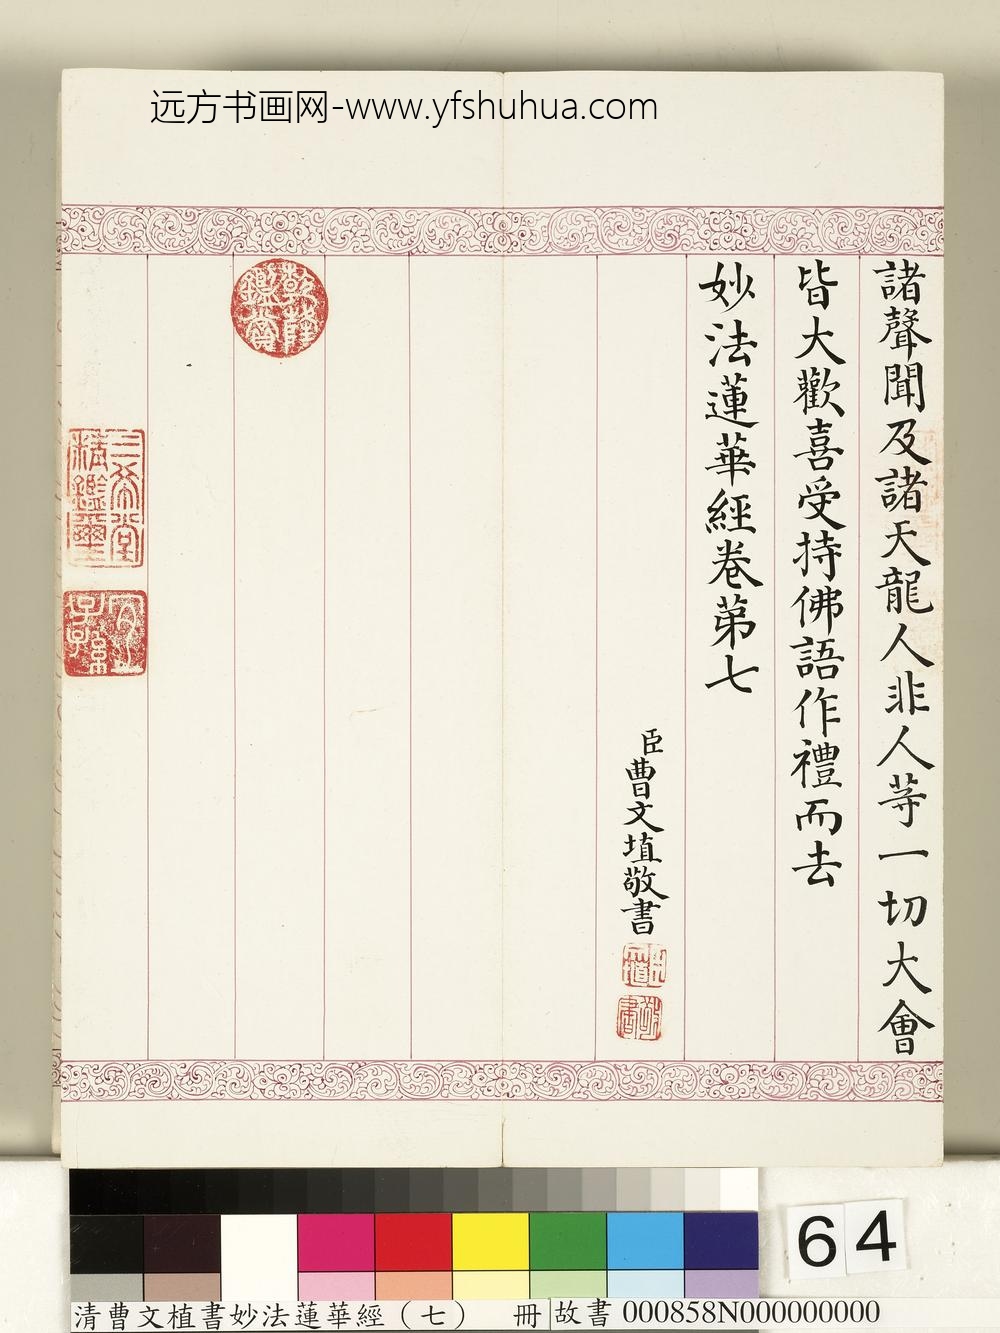 远方书画网-www.yfshuhua.com
諸聲聞及諸天龍人非人等一切大會
皆大歡喜受持佛語作禮而去
妙法蓮華經卷第七
臣曹文埴敬書
臣埴
敬書
乾隆鑑賞
三希堂精鑑璽
宜子孫
64
清曹文植書妙法蓮華經（七） 冊
故書 000858N000000000